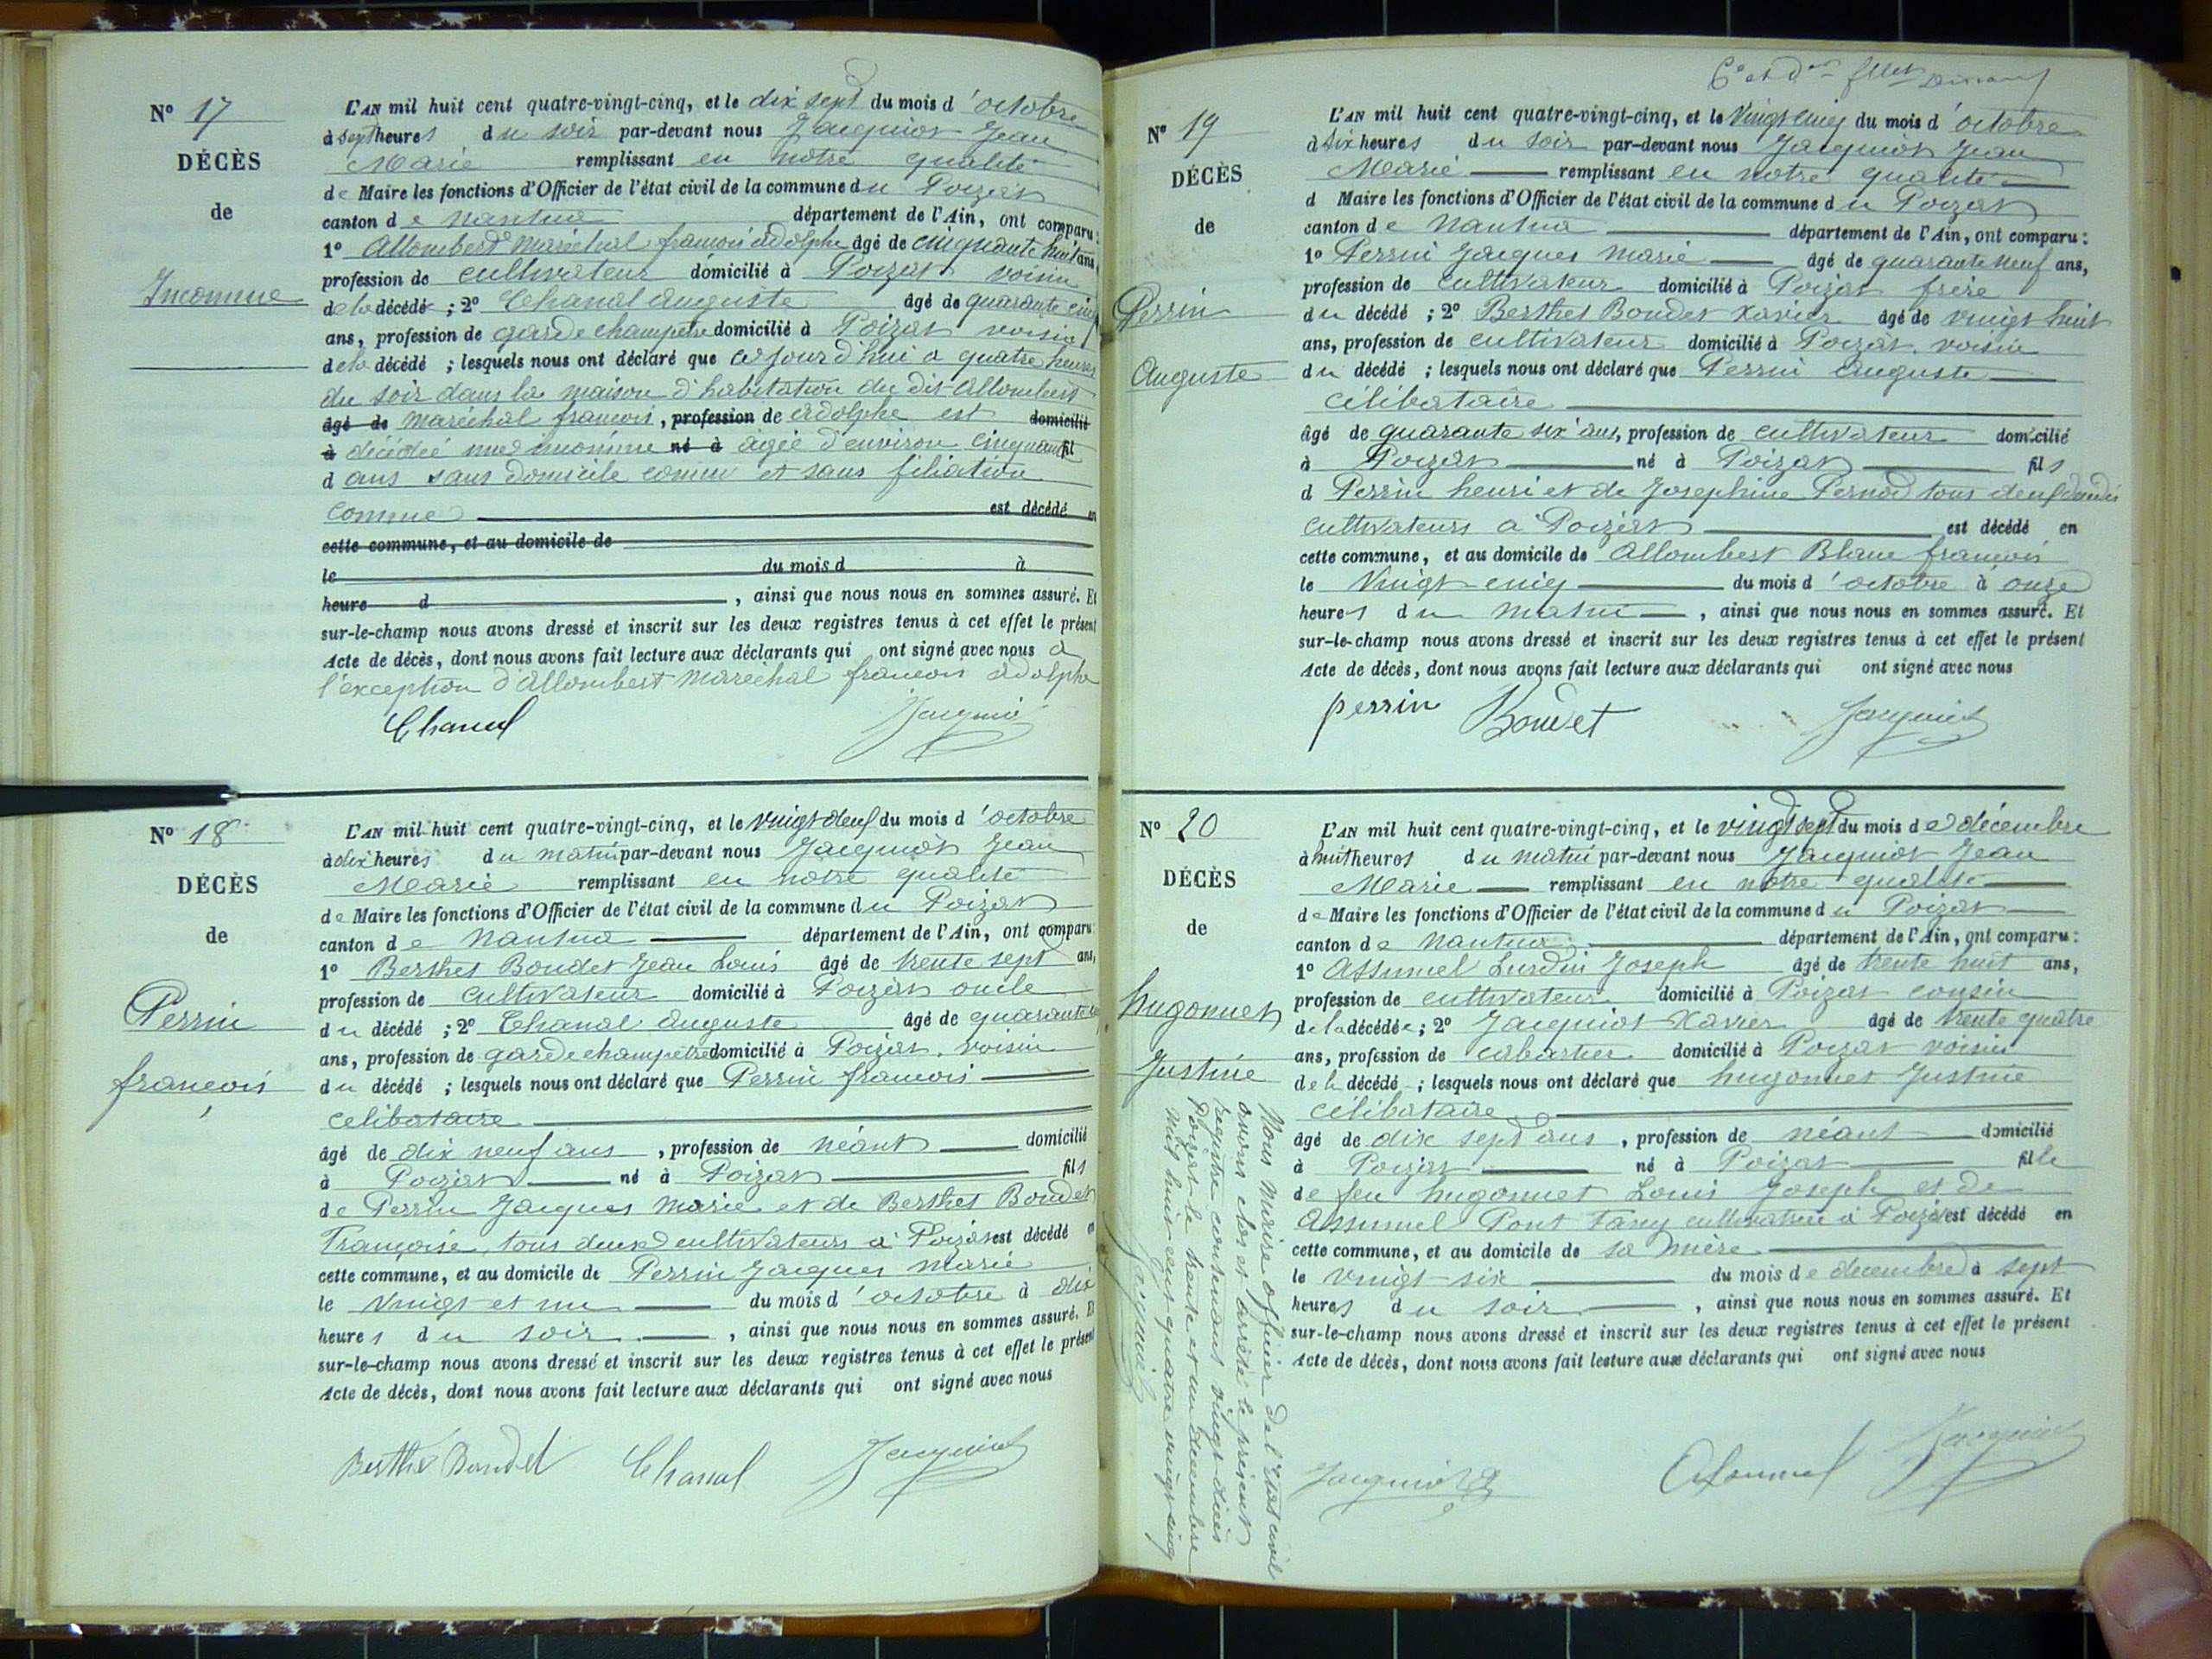 N° 17
DÉCÈS
de
Inconnue
L'AN mil huit cent quatre-vingt-cinq, et le dix sept du mois d'octobre
à sept heures du soir par-devant nous Jacquiot Jean
Marie remplissant en notre qualité
de Maire les fonctions d'Officier de l'état civil de la commune du Poizat
canton de Nantua département de l'Ain, ont comparu :
1° Allombert Maréchal françois adolphe âgé de cinquante huit ans,
profession de cultivateur domicilié à Poizat voisin
de la décédé ; 2° Chanal auguste âgé de quarante cinq
ans, profession de garde champetre domicilié à Poizat voisin
de la décédé ; lesquels nous ont déclaré que ce jour d'hui a quatre heures
du soir dans la maison d'habitation du dit Allombert
âgé de maréchal françois, profession de adolphe est domicilié
à décédée une inconnue né à agée d'environ cinquante fil
d ans sans domicile connu et sans filiation
connue est décédé en
cette commune, et au domicile de
le du mois d à
heure d , ainsi que nous nous en sommes assuré. Et
sur-le-champ nous avons dressé et inscrit sur les deux registres tenus à cet effet le présent
Acte de décès, dont nous avons fait lecture aux déclarants qui ont signé avec nous a
l'exception d'Allombert Maréchal françois adolphe
Chanal Jacquiot
N° 18
DÉCÈS
de
Perrin
françois
L'AN mil huit cent quatre-vingt-cinq, et le vingt deux du mois d'octobre
à dix heures du matin par-devant nous Jacquiot Jean
Marie remplissant en notre qualité
de Maire les fonctions d'Officier de l'état civil de la commune du Poizat
canton de Nantua département de l'Ain, ont comparu :
1° Berthet Bondet Jean Louis âgé de trente sept ans,
profession de cultivateur domicilié à Poizat oncle
du décédé ; 2° Chanal auguste âgé de quarante cinq
ans, profession de garde champetre domicilié à Poizat. voisin
du décédé ; lesquels nous ont déclaré que Perrin françois
celibataire
âgé de dix neuf ans, profession de néant domicilié
à Poizat né à Poizat fils
de Perrin Jacques Marie et de Berthet Bondet
Françoise, tous deux cultivateurs a Poizat est décédé en
cette commune, et au domicile de Perrin Jacques Marie
le vingt et un du mois d'octobre à dix
heures du soir , ainsi que nous nous en sommes assuré. Et
sur-le-champ nous avons dressé et inscrit sur les deux registres tenus à cet effet le présent
Acte de décès, dont nous avons fait lecture aux déclarants qui ont signé avec nous
Berthet Bondet Chanal Jacquiot
N° 19
DÉCÈS
de
Perrin
Auguste
L'AN mil huit cent quatre-vingt-cinq, et le Vingt cinq du mois d'octobre
à six heures du soir par-devant nous Jacquiot Jean
Marie remplissant en notre qualité
d Maire les fonctions d'Officier de l'état civil de la commune du Poizat
canton de Nantua département de l'Ain, ont comparu :
1° Perrin Jacques Marie âgé de quarante neuf ans,
profession de cultivateur domicilié à Poizat frere
du décédé ; 2° Berthet Bondet Xavier âgé de vingt huit
ans, profession de cultivateur domicilié à Poizat. voisin
du décédé ; lesquels nous ont déclaré que Perrin Auguste
célibataire
âgé de quarante six ans, profession de cultivateur domicilié
à Poizat né à Poizat fils
d Perrin henri et de Josephine Pernod tous deux
cultivateurs a Poizat est décédé en
cette commune, et au domicile de Allombert Blanc françois
le Vingt cinq du mois d'octobre à onze
heures du matin , ainsi que nous nous en sommes assuré. Et
sur-le-champ nous avons dressé et inscrit sur les deux registres tenus à cet effet le présent
Acte de décès, dont nous avons fait lecture aux déclarants qui ont signé avec nous
perrin Bondet Jacquiot
N° 20
DÉCÈS
de
hugonnet
Justine
L'AN mil huit cent quatre-vingt-cinq, et le vingt sept du mois de décembre
à huit heures du matin par-devant nous Jacquiot Jean
Marie remplissant en notre qualité
de Maire les fonctions d'Officier de l'état civil de la commune du Poizat
canton de Nantua département de l'Ain, ont comparu :
1° Assumel Lurdin Joseph âgé de trente huit ans,
profession de cultivateur domicilié à Poizat cousin
de la décédée ; 2° Jacquiot Xavier âgé de trente quatre
ans, profession de cabartier domicilié à Poizat voisin
de la décédé ; lesquels nous ont déclaré que hugonnet Justine
célibataire
âgé de dix sept ans, profession de néant domicilié
à Poizat né à Poizat fille
de feu hugonnet Louis Joseph et de
Assumel Pont Fany cultivatrice a Poizat est décédé en
cette commune, et au domicile de sa mère
le vingt six du mois de decembre à sept
heures du soir , ainsi que nous nous en sommes assuré. Et
sur-le-champ nous avons dressé et inscrit sur les deux registres tenus à cet effet le présent
Acte de décès, dont nous avons fait lecture aux déclarants qui ont signé avec nous
Jacquiot Assumel Jacquiot
Nous Maire officier de l'Etat civil
avons clos et arrêté le présent
registre contenant vingt décès
Poizat le trente et un decembre
mil huit cent quatre vingt cinq
Jacquiot